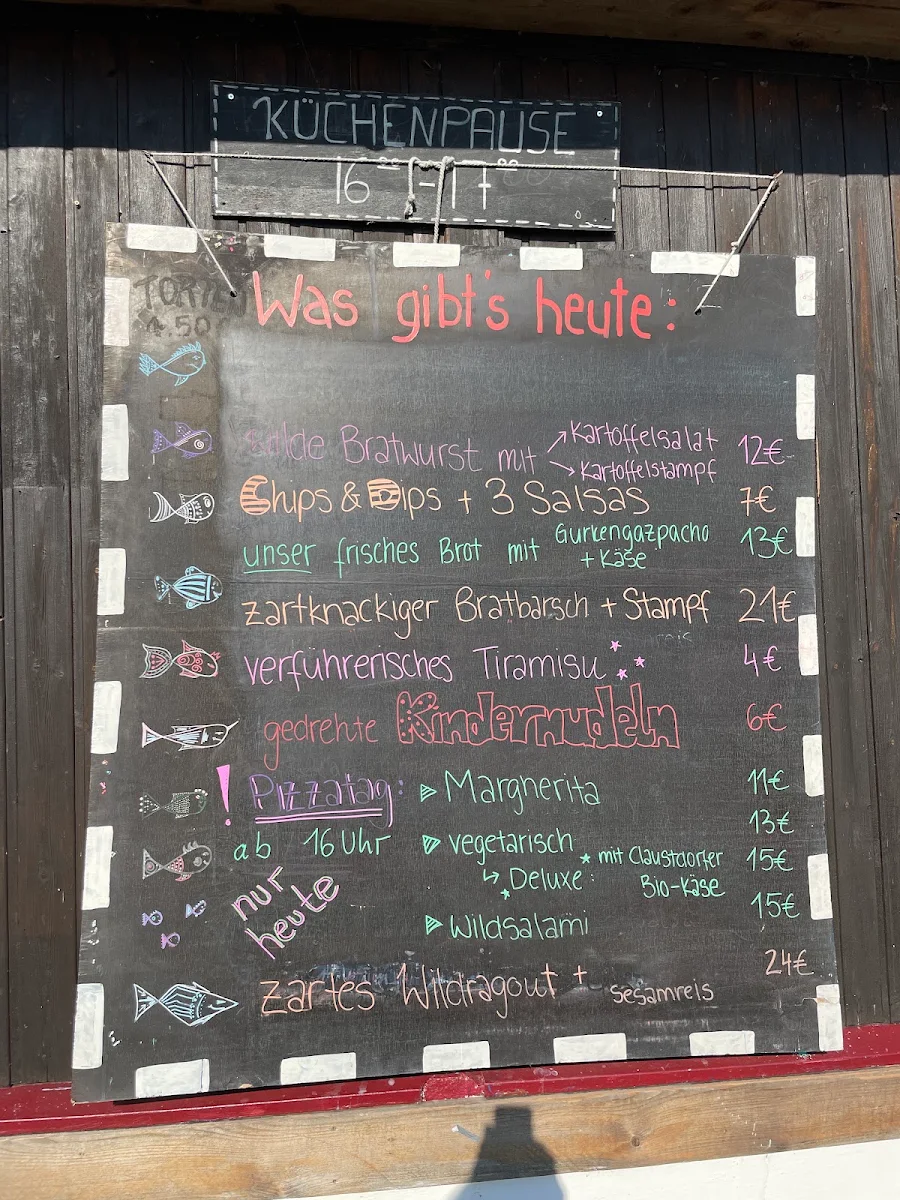 KÜCHENPAUSE
16⁰⁰-17⁰⁰
TORTE
1.50
Was gibt's heute:
Bratwurst mit → Kartoffelsalat 12€
→ Kartoffelstampf
Chips & Dips + 3 Salsas 7€
unser frisches Brot mit Gurkengazpacho 13€
+ Käse
zartknackiger Bratbarsch + Stampf 21€
verführerisches Tiramisu 4€
gedrehte Kindernudeln 6€
! Pizzatag: ▷ Margherita 11€
ab 16 Uhr ▷ vegetarisch 13€
↳ Deluxe: * mit Claustdorfer 15€
Bio-Käse
nur
heute
▷ Wildsalami 15€
zartes Wildragout + Sesamreis 24€